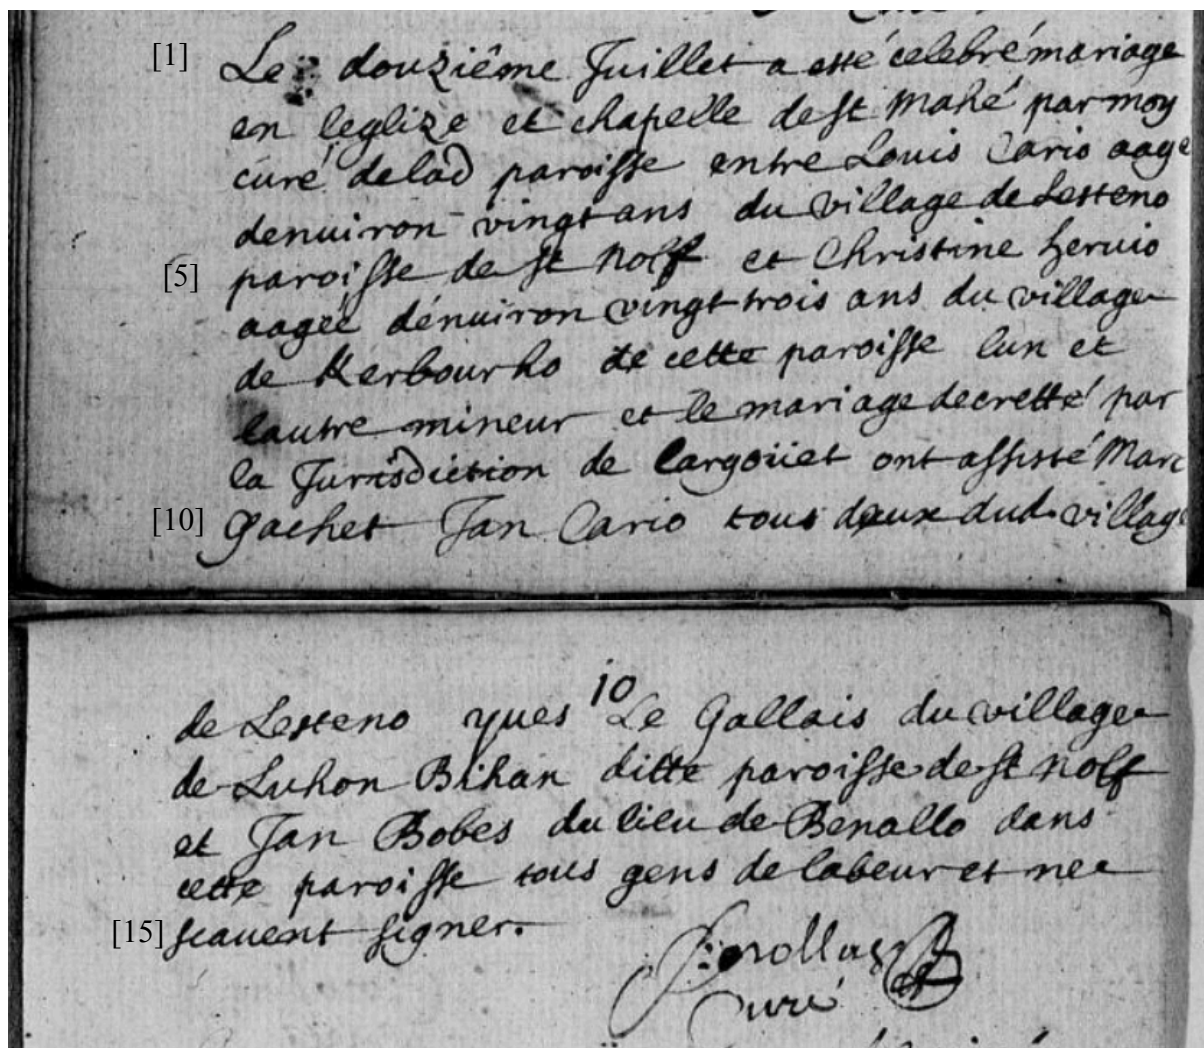 [1] Le douziême Juillet a esté celebré mariage
en leglize et chapelle de st Mahé par moy
curé de lad paroisse entre Louis Cario aage
denuiron vingt ans du village de Lesteno
[5] paroisse de st Nolff et Christine heruio
aageé dénuiron vingt trois ans du village
de Kerbourho de cette paroisse lun et
lautre mineur et le mariage decretté par
la Jurisdiction de Largoüet ont assisté Marc
[10] Gachet Jan Cario tous deux dud village
10
de Lesteno yues Le Gallois du village
de Luhon Bihan ditte paroisse de st Nolff
et Jan Bobes du lieu de Benallo dans
cette paroisse tous gens de labeur et ne
[15] scauent signer.
curé